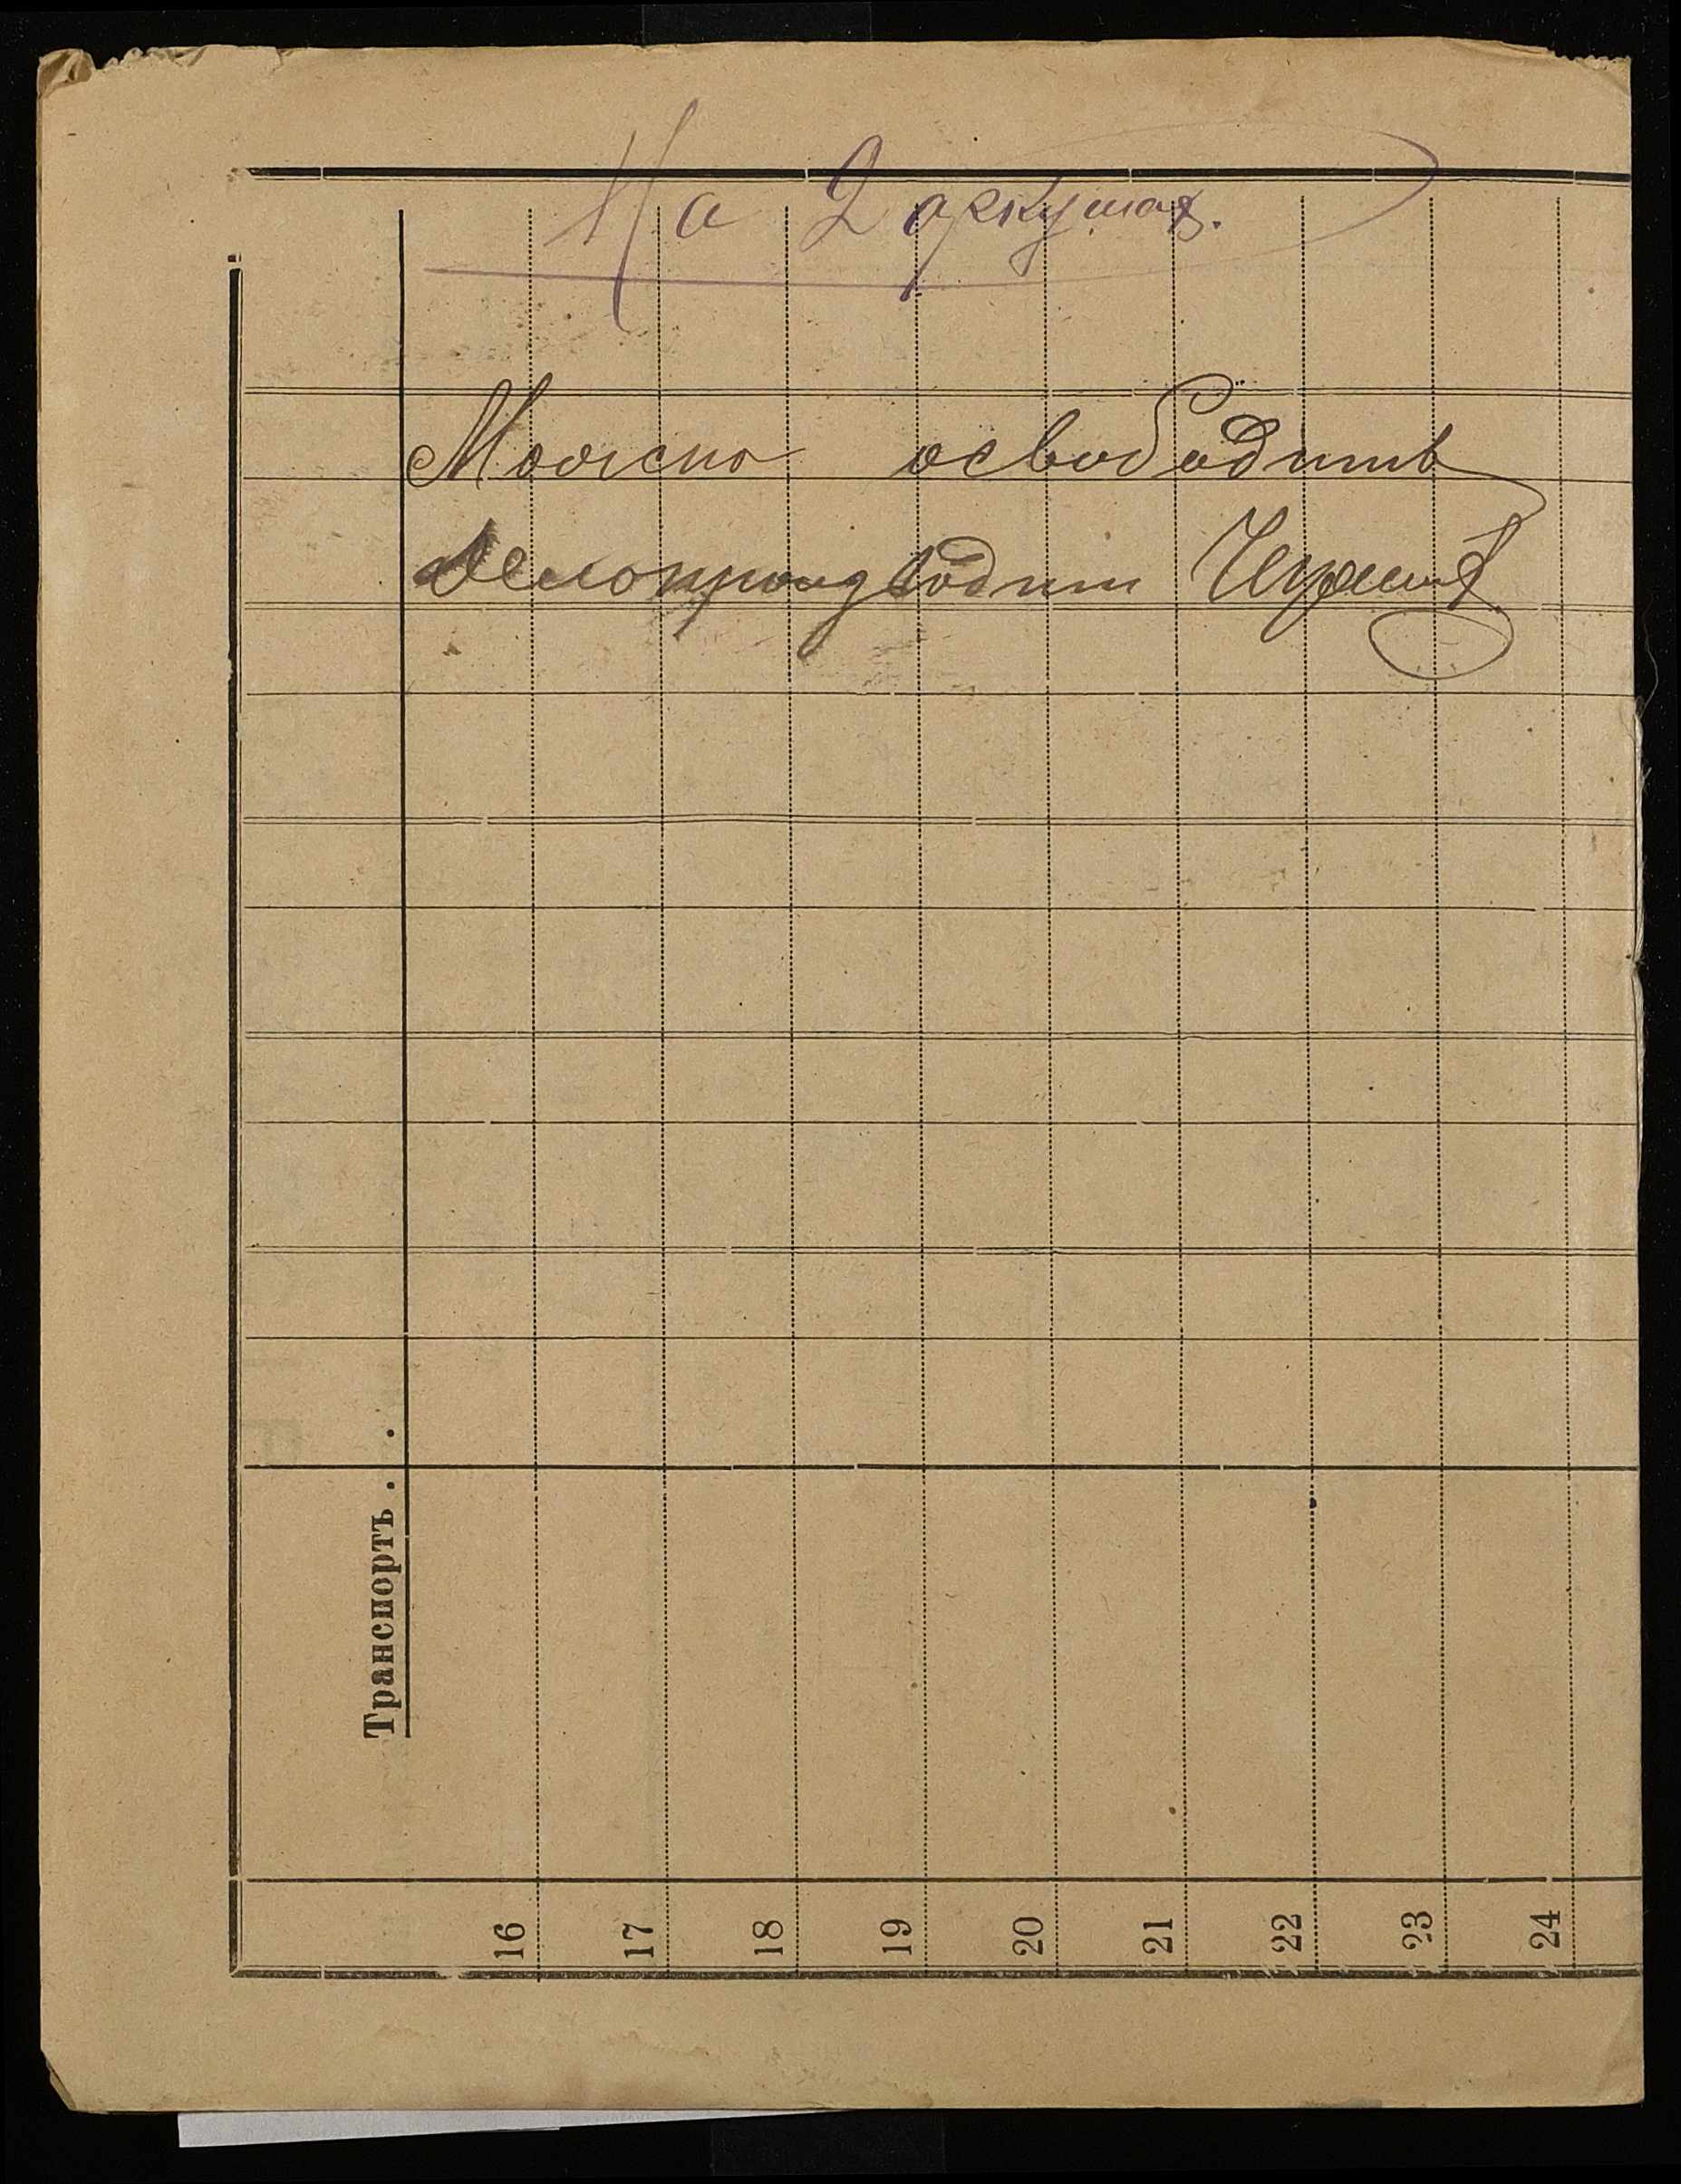 На 2 аркушах.
Можно освободить
Делопроизводит
Транспортъ . .
16 17 18 19 20 21 22 23 24